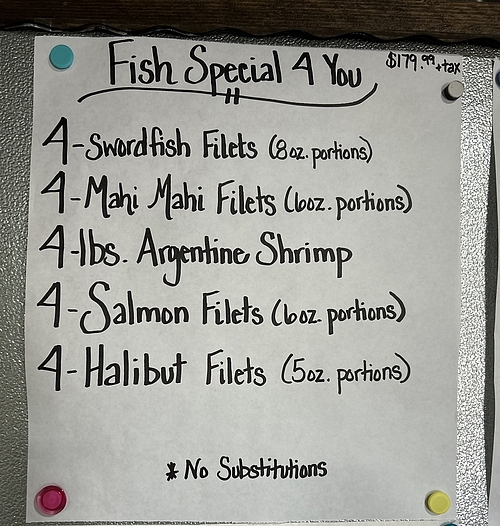 Fish Special 4 You
$179.99 + tax
4-Swordfish Filets (8oz. portions)
4-Mahi Mahi Filets (6oz. portions)
4-lbs. Argentine Shrimp
4-Salmon Filets (6oz. portions)
4-Halibut Filets (5oz. portions)
* No Substitutions